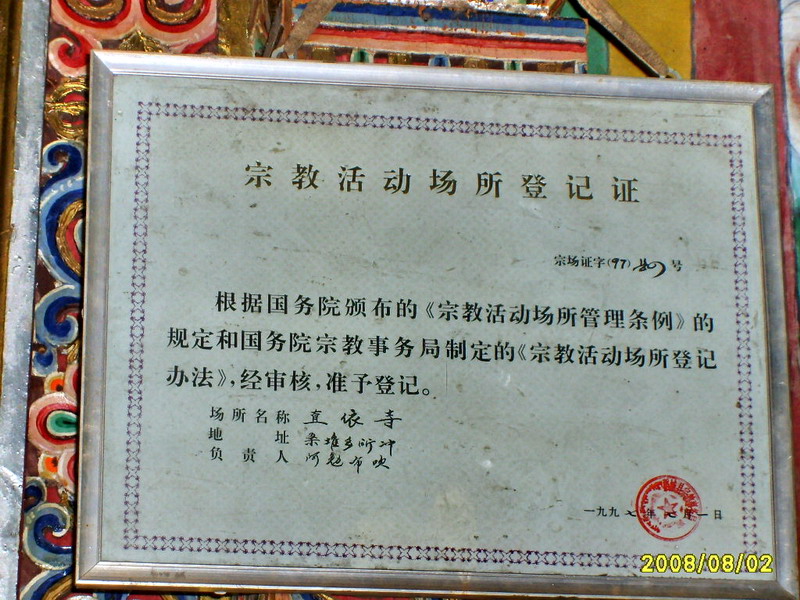 宗教活动场所登记证
宗场证字(97) 号
根据国务院颁布的《宗教活动场所管理条例》的
规定和国务院宗教事务局制定的《宗教活动场所登记
办法》，经审核，准予登记。
场所名称 直依寺
地 址 桑堆乡所冲
负责人 阿 布吹
一九九七年七月一日
2008/08/02